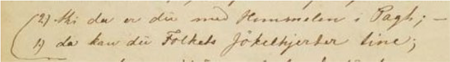 2) Thi da er du med Himmelen i Pagt; —
1) da kan du Folkets Jøkelhjerter tine;